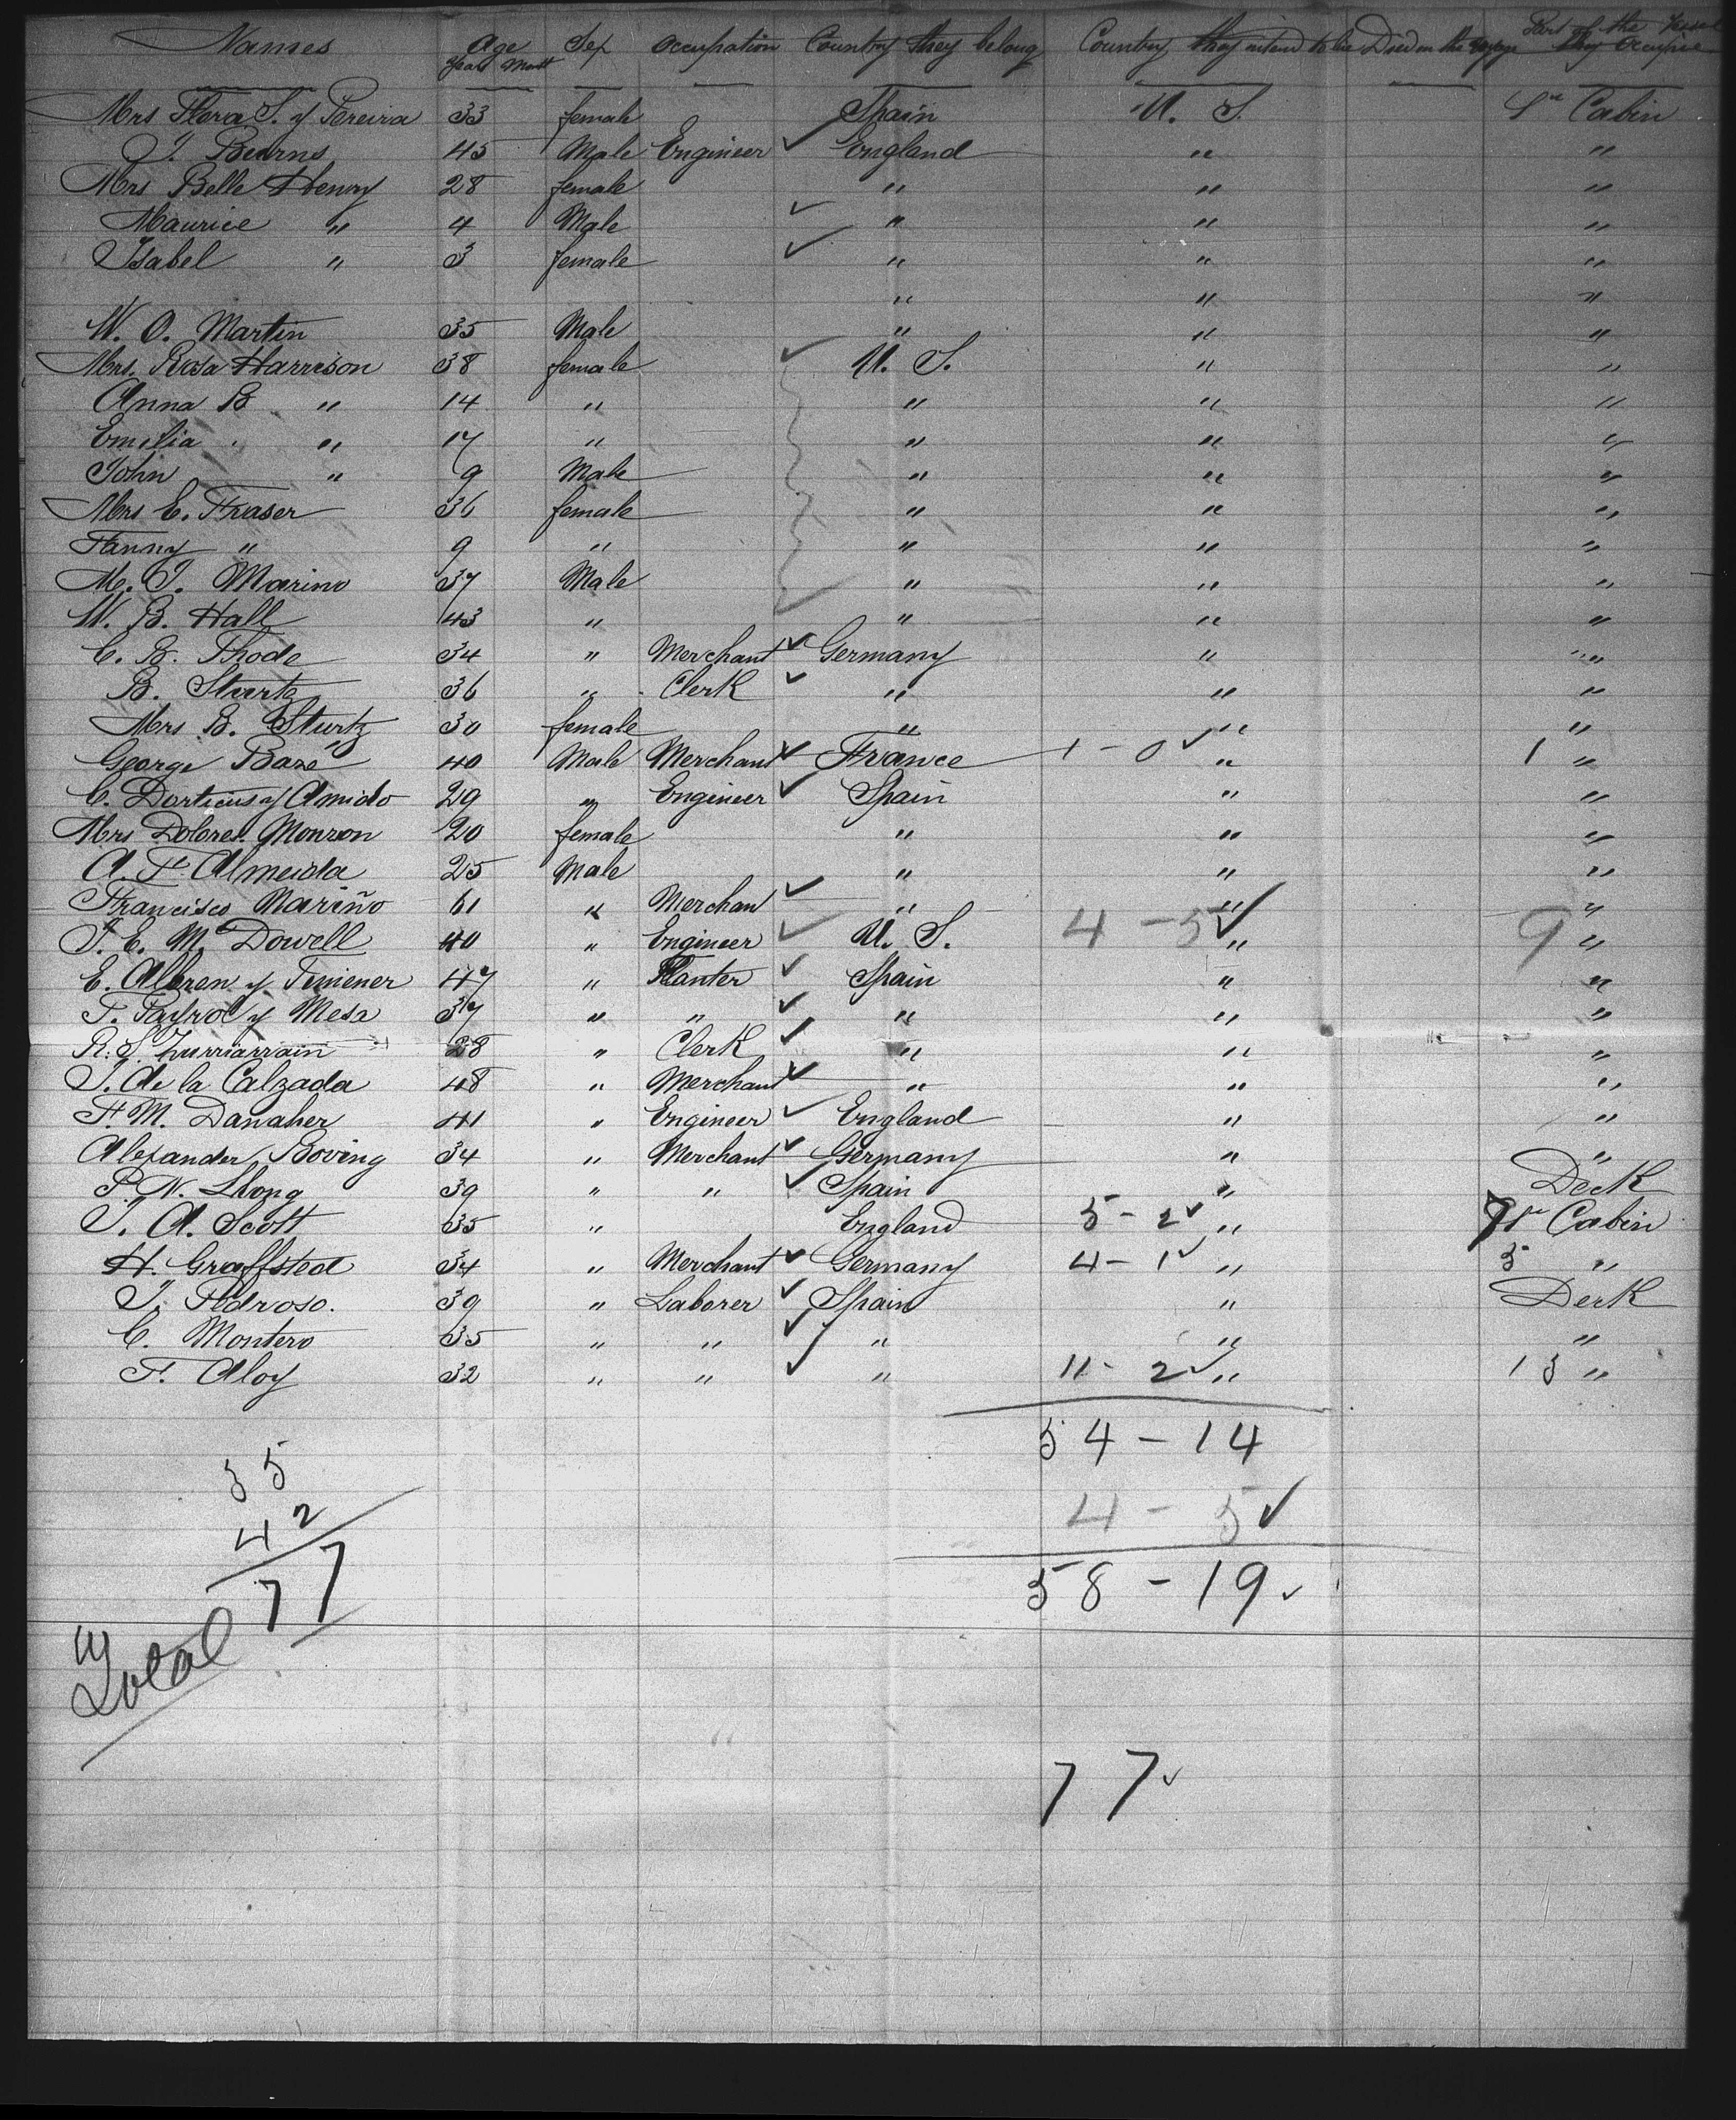 Names Age Years Mont Sex Occupation Country they belong Country they intend to be Died on the voyage Part of the Vessel they Occupie
Mrs Flora S. y Pereira 33 female Spain U. S. Cabin
J. Bearns 45 Male Engineer ✓ England " "
Mrs Belle Henry 28 female " " "
Maurice " 4 Male ✓ " " "
Isabel " 3 female ✓ " " "
" " "
W. O. Martin 35 Male " " "
Mrs. Rosa Harrison 38 female ✓ U. S. " "
Anna B " 14 " " " "
Emilia " 17 " " " "
John " 9 Male " " "
Mrs E. Fraser 36 female " " "
Fanny " 9 " " " "
M. J. Marino 37 Male " " "
W. B. Hall 43 " ✓ " " "
C. B. Thode 34 " Merchant ✓ Germany " "
B. Sturtz 36 " Clerk ✓ " " "
Mrs B. Sturtz 30 female " " "
George Bazé 40 Male Merchant ✓ France 1 - 0 ✓ " 1 "
C. Dorticus y Amido 29 " Engineer ✓ Spain " "
Mrs Dolores Monzon 20 female " " "
A. F. Almeida 25 Male " " "
Francisco Mariño 61 " Merchan ✓ " " "
J. E. Mc Dowell 40 " Engineer ✓ U. S. 4 - 5 ✓ " 9 "
E. Albren y Jimener 47 " Planter ✓ Spain " "
F. Payrol y Mesa 37 " " ✓ " " "
R. S. 28 " Clerk ✓ " " "
J. de la Calzada 48 " Merchant ✓ " " "
F. M. Danaher 41 " Engineer ✓ England " "
Alexander Boving 34 " Merchant ✓ Germany " "
P. N. 39 " " ✓ Spain " Deck
J. A. Scott 35 " England 5 - 2 ✓ " 7 Cabin
H. Graffsted 34 " Merchant ✓ Germany 4 - 1 ✓ " 5 "
J. Pedroso. 39 " Laborer ✓ Spain " Deck
C. Montero 35 " " ✓ " " "
F. Aloy 32 " " ✓ " 11 - 2 ✓ " 13 "
54 - 14
35
42
77
Total
4 - 5 ✓
58 - 19 ✓
77 ✓